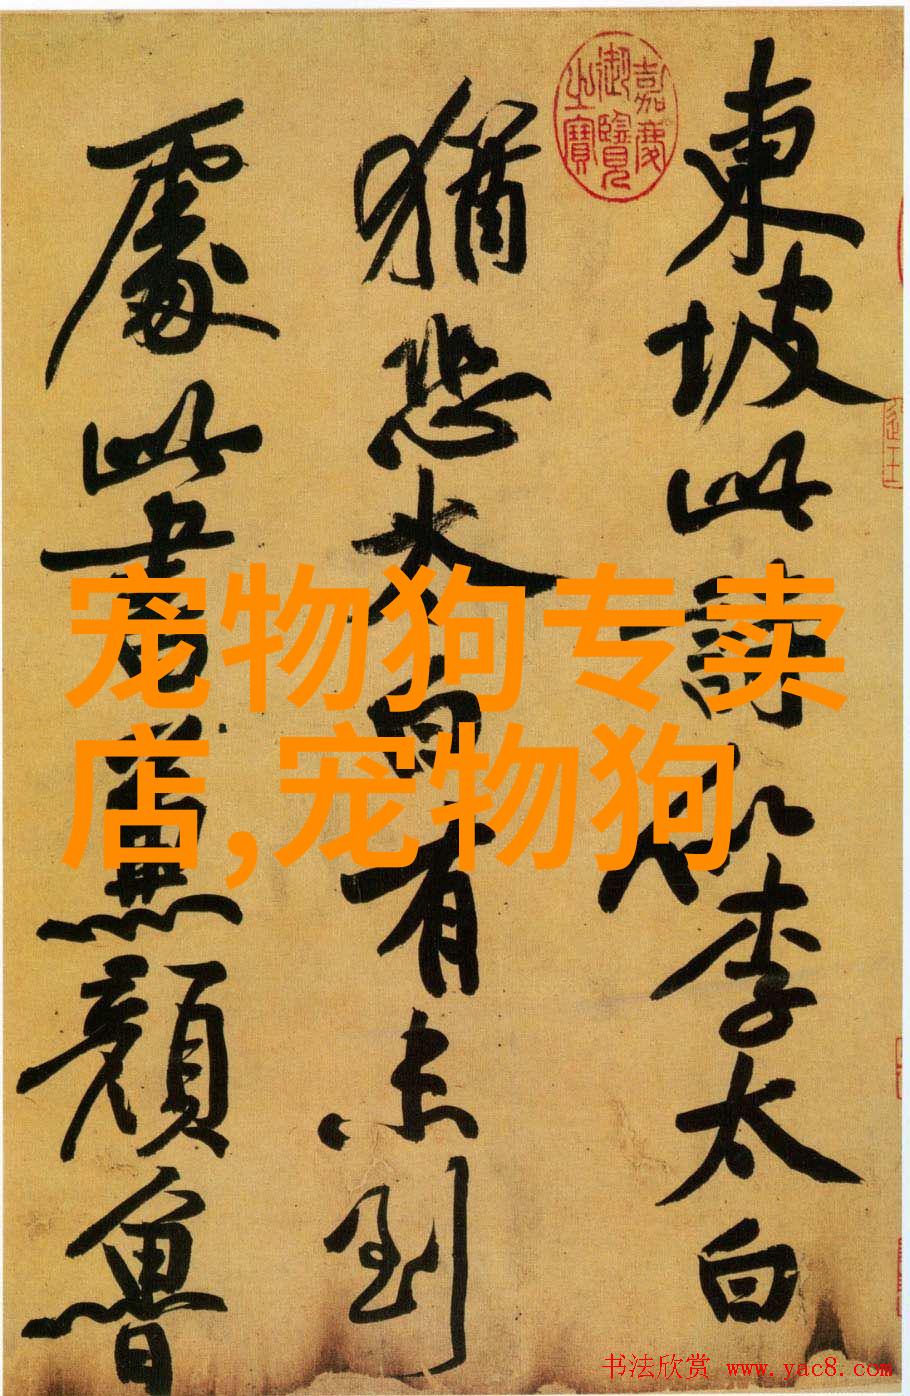 東坡此詩似李太白
猶恐太白有未到
處此書兼顏魯
嘉慶
御覽
之寶
宠物狗专卖
店,宠物狗
书法欣赏 www.yac8.com